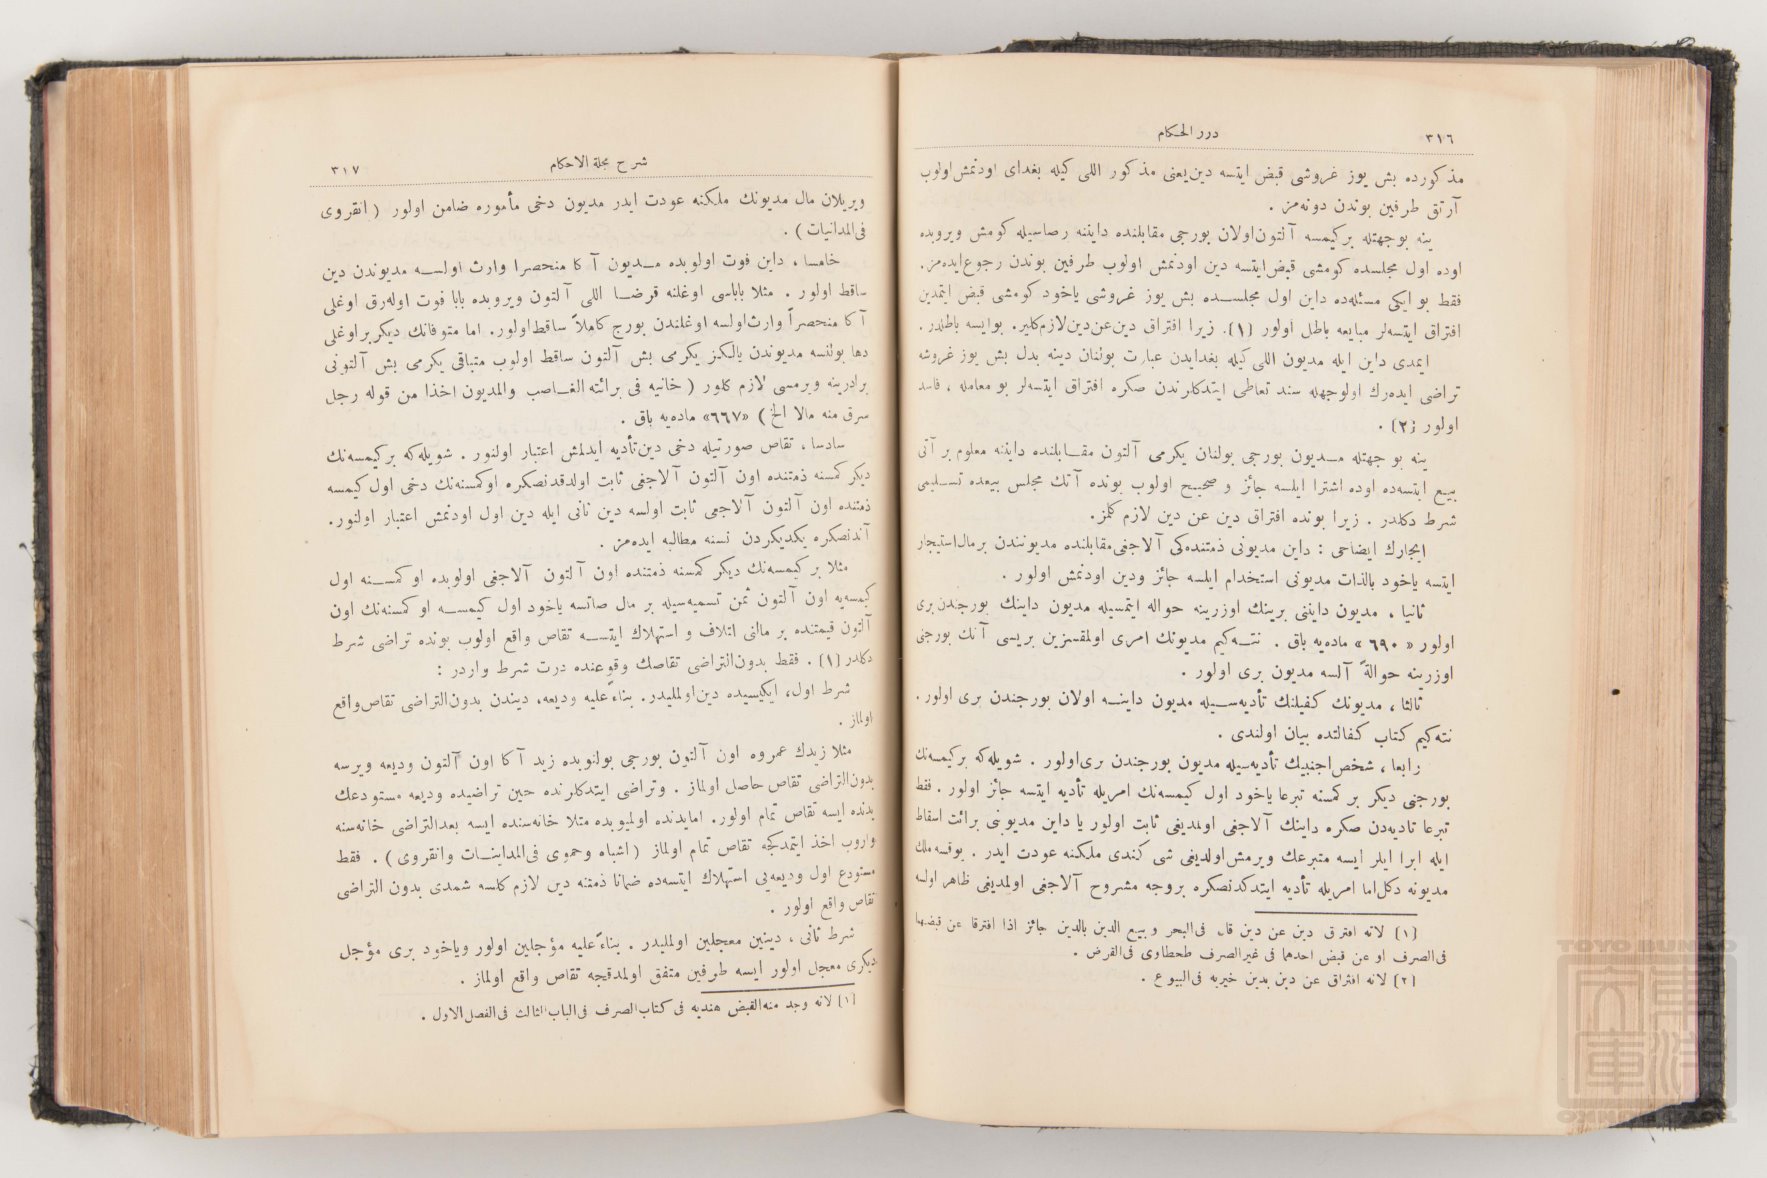 ٣١٦
درر الحكام
مذكورده بش يوز غروشى قبض ايتسه دين يعنى مذكور اللى كيله بغداى اودنمش اولوب
آرتق طرفين بوندن دونه‌مز .
ينه بو جهتله بركيمسه آلتون اولان بورجى مقابلنده داينه رضاسيله كومش ويروبده
اوده اول مجلسده كومشى قبض ايتسه دين اودنمش اولوب طرفين بوندن رجوع ايده‌مز.
فقط بو ايكى مسئله‌ده داين اول مجلسـده بش يوز غروشى ياخود كومشى قبض ايتمدين
افتراق ايتسه‌لر مبايعه باطل اولور (١). زيرا افتراق دين عن دين لازم كلير. بوايسه باطلدر .
ايمدى داين ايله مديون اللى كيله بغدايدن عبارت بولنان دينه بدل بش يوز غروشه
تراضى ايده‌رك اولوجهله سند تعاطى ايتدكلرندن صكره افتراق ايتسه‌لر بو معامله ، فاسد
اولور (٢) .
ينه بو جهتله مـديون بورجى بولنان يكرمى آلتون مقـابلنده داينه معلوم بر آتى
بيع ايتسه‌ده اوده اشترا ايلسه جائز و صحيح اولوب بونده آتك مجلس بيعده تسـليمى
شرط دكلدر . زيرا بونده افتراق دين عن دين لازم كلمز.
ايجارك ايضاحى : داين مديونى ذمتنده‌كى آلاجغى مقابلنده مديونندن برمال استيجار
ايتسه ياخود بالذات مديونى استخدام ايلسه جائز ودين اودنمش اولور .
ثانيا ، مديون داينى برينك اوزرينه حواله ايتمسيله مديون داينك بورجندن برى
اولور « ٦٩٠ » ماده‌يه باق . نتـه‌كيم مديونك امرى اولمقسزين بريسى آنك بورجنى
اوزرينه حوالةً آلسه مديون برى اولور .
ثالثا ، مديونك كفيلنك تأديه‌سـيله مديون داينـه اولان بورجندن برى اولور .
نته‌كيم كتاب كفالتده بيان اولندى .
رابعا ، شخص اجنبينك تأديه‌سيله مديون بورجندن برى اولور . شويله‌كه بركيمسه‌نك
بورجنى ديكر بر كمسنه تبرعا ياخود اول كيمسه‌نك امريله تأديه ايتسه جائز اولور . فقط
تبرعا تاديه‌دن صكره داينك آلاجغى اولمديغى ثابت اولور يا داين مديونى برائت اسقاط
ايله ابرا ايلر ايسه متبرعك ويرمش اولديغى شى كندى ملكنه عودت ايدر . يوقسه ملك
مديونه دكل اما امريله تأديه ايتدكدنصكره بروجه مشروح آلاجغى اولمديغى ظاهر اولسه
(١) لانه افترق دين عن دين قال فى‌البحر و بيع الدين بالدين جائز اذا افترقا عن قبضهما
فى‌الصرف او عن قبض احدهما فى غير‌الصرف طحطاوى فى‌القرض .
(٢) لانه افتراق عن دين بدين خيريه فى‌البيوع .
شرح مجلة الاحكام
٣١٧
ويريلان مال مديونك ملكنه عودت ايدر مديون دخى مأموره ضامن اولور ( انقروى
فى‌المداينات ) .
خامسا ، داين فوت اولوبده مـديون آكا منحصرا وارث اولسـه مديوندن دين
ساقط اولور . مثلا باباسى اوغلنه قرضـا اللى آلتون ويروبده بابا فوت اوله‌رق اوغلى
آكا منحصراً وارث اولسه اوغلندن بورج كاملاً ساقط اولور. اما متوفانك ديكر براوغلى
دها بولنسه مديوندن يالكز يكرمى بش آلتون ساقط اولوب متباقى يكرمى بش آلتونى
برادرينه ويرمسى لازم كلور ( خانيه فى برائته الغـاصب والمديون اخذا من قوله رجل
سرق منه مالا الخ ) «٦٦٧» ماده‌يه باق .
سادسا ، تقاص صورتيله دخى دين تأديه ايدلمش اعتبار اولنور . شويله‌كه بركيمسه‌نك
ديكر كمسنه ذمتنده اون آلتون آلاجغى ثابت اولدقدنصكره اوكمسنه‌نك دخى اول كيمسه
ذمتنده اون آلتون آلاجغى ثابت اولسه دين ثانى ايله دين اول اودنمش اعتبار اولنور.
آندنصكره يكديكردن نسنه مطالبه ايده‌مز .
مثلا بر كيمسه‌نك ديكر كمسنه ذمتنده اون آلتون آلاجغى اولوبده او كمسـنه اول
كيمسه‌يه اون آلتون ثمن تسميه‌سيله بر مال صاتسه ياخود اول كيمسـه او كمسنه‌نك اون
آلتون قيمتنده بر مالنى اتلاف و استهلاك ايتسـه تقاص واقع اولوب بونده تراضى شرط
دكلدر (١) . فقط بدون‌التراضى تقاصك وقوعنده درت شرط واردر :
شرط اول، ايكيسيده دين اولمليدر. بناءً‌عليه وديعه، ديندن بدون‌التراضى تقاص واقع
اولماز .
مثلا زيدك عمروه اون آلتون بورجى بولنوبده زيد آكا اون آلتون وديعه ويرسه
بدون‌التراضى تقاص حاصل اولماز . وتراضى ايتدكلرنده حين تراضيده وديعه مستودعك
يدنده ايسه تقاص تمام اولور. اما يدنده اولميوبده مثلا خانه‌سنده ايسه بعدالتراضى خانه‌سنه
واروب اخذ ايتمدكجه تقاص تمام اولماز (اشباه وحموى فى‌المداينـات وانقروى) . فقط
مستودع اول وديعه‌يى استهلاك ايتسه‌ده ضمانا ذمتنه دين لازم كلسه شمدى بدون التراضى
تقاص واقع اولور .
شرط ثانى ، دينين معجلين اولمليدر . بناءً‌عليه مؤجلين اولور وياخود برى مؤجل
ديكرى معجل اولور ايسه طرفين متفق اولمدقجه تقاص واقع اولماز .
(١) لانه وجد منه‌القبض هنديه فى كتاب‌الصرف فى‌الباب‌الثالث فى‌الفصل‌الاول .
TOYO BUNKO